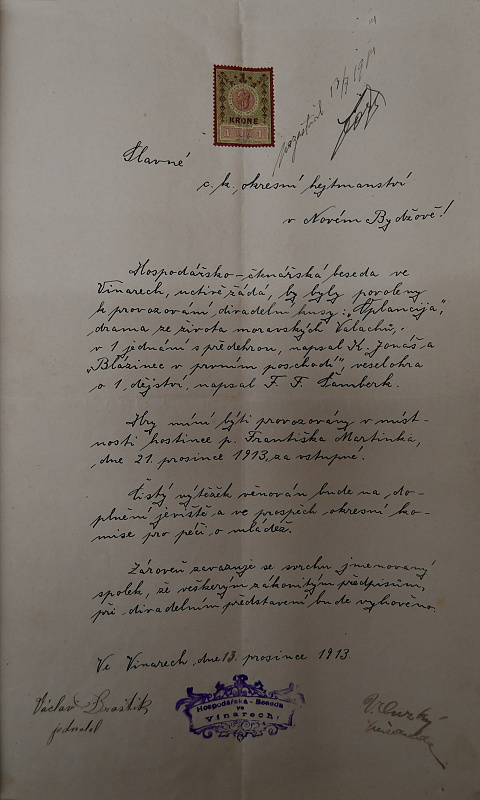 1
KRONE
1 1
13/9 1914
Slavné
c. k. okresní hejtmanství
v Novém Bydžově!
Hospodářsko-čtenářská beseda ve
Vinarech, uctivě žádá, by byly povoleny
k provozování divadelní kusy: „Šplancija“,
drama ze života moravských Valachů,
v 1 jednání s předehrou, napsal K. Jonáš a
„Blázinec v prvním poschodí“, veselohra
o 1. dějství, napsal F. F. Šamberk.
Hry míní býti provozovány v míst-
nosti hostince p. Františka Martínka,
dne 21. prosince 1913, za vstupné.
Čistý výtěžek věnován bude na do-
plnění jeviště a ve prospěch okresní ko-
mise pro péči o mládež.
Zároveň zavazuje se svrchu jmenovaný
spolek, že veškerým zákonitým předpisům,
při divadelním představení bude vyhověno.
Ve Vinarech, dne 13. prosince 1913.
Václav
jednatel
Hospodářská-Beseda
ve
Vinarech